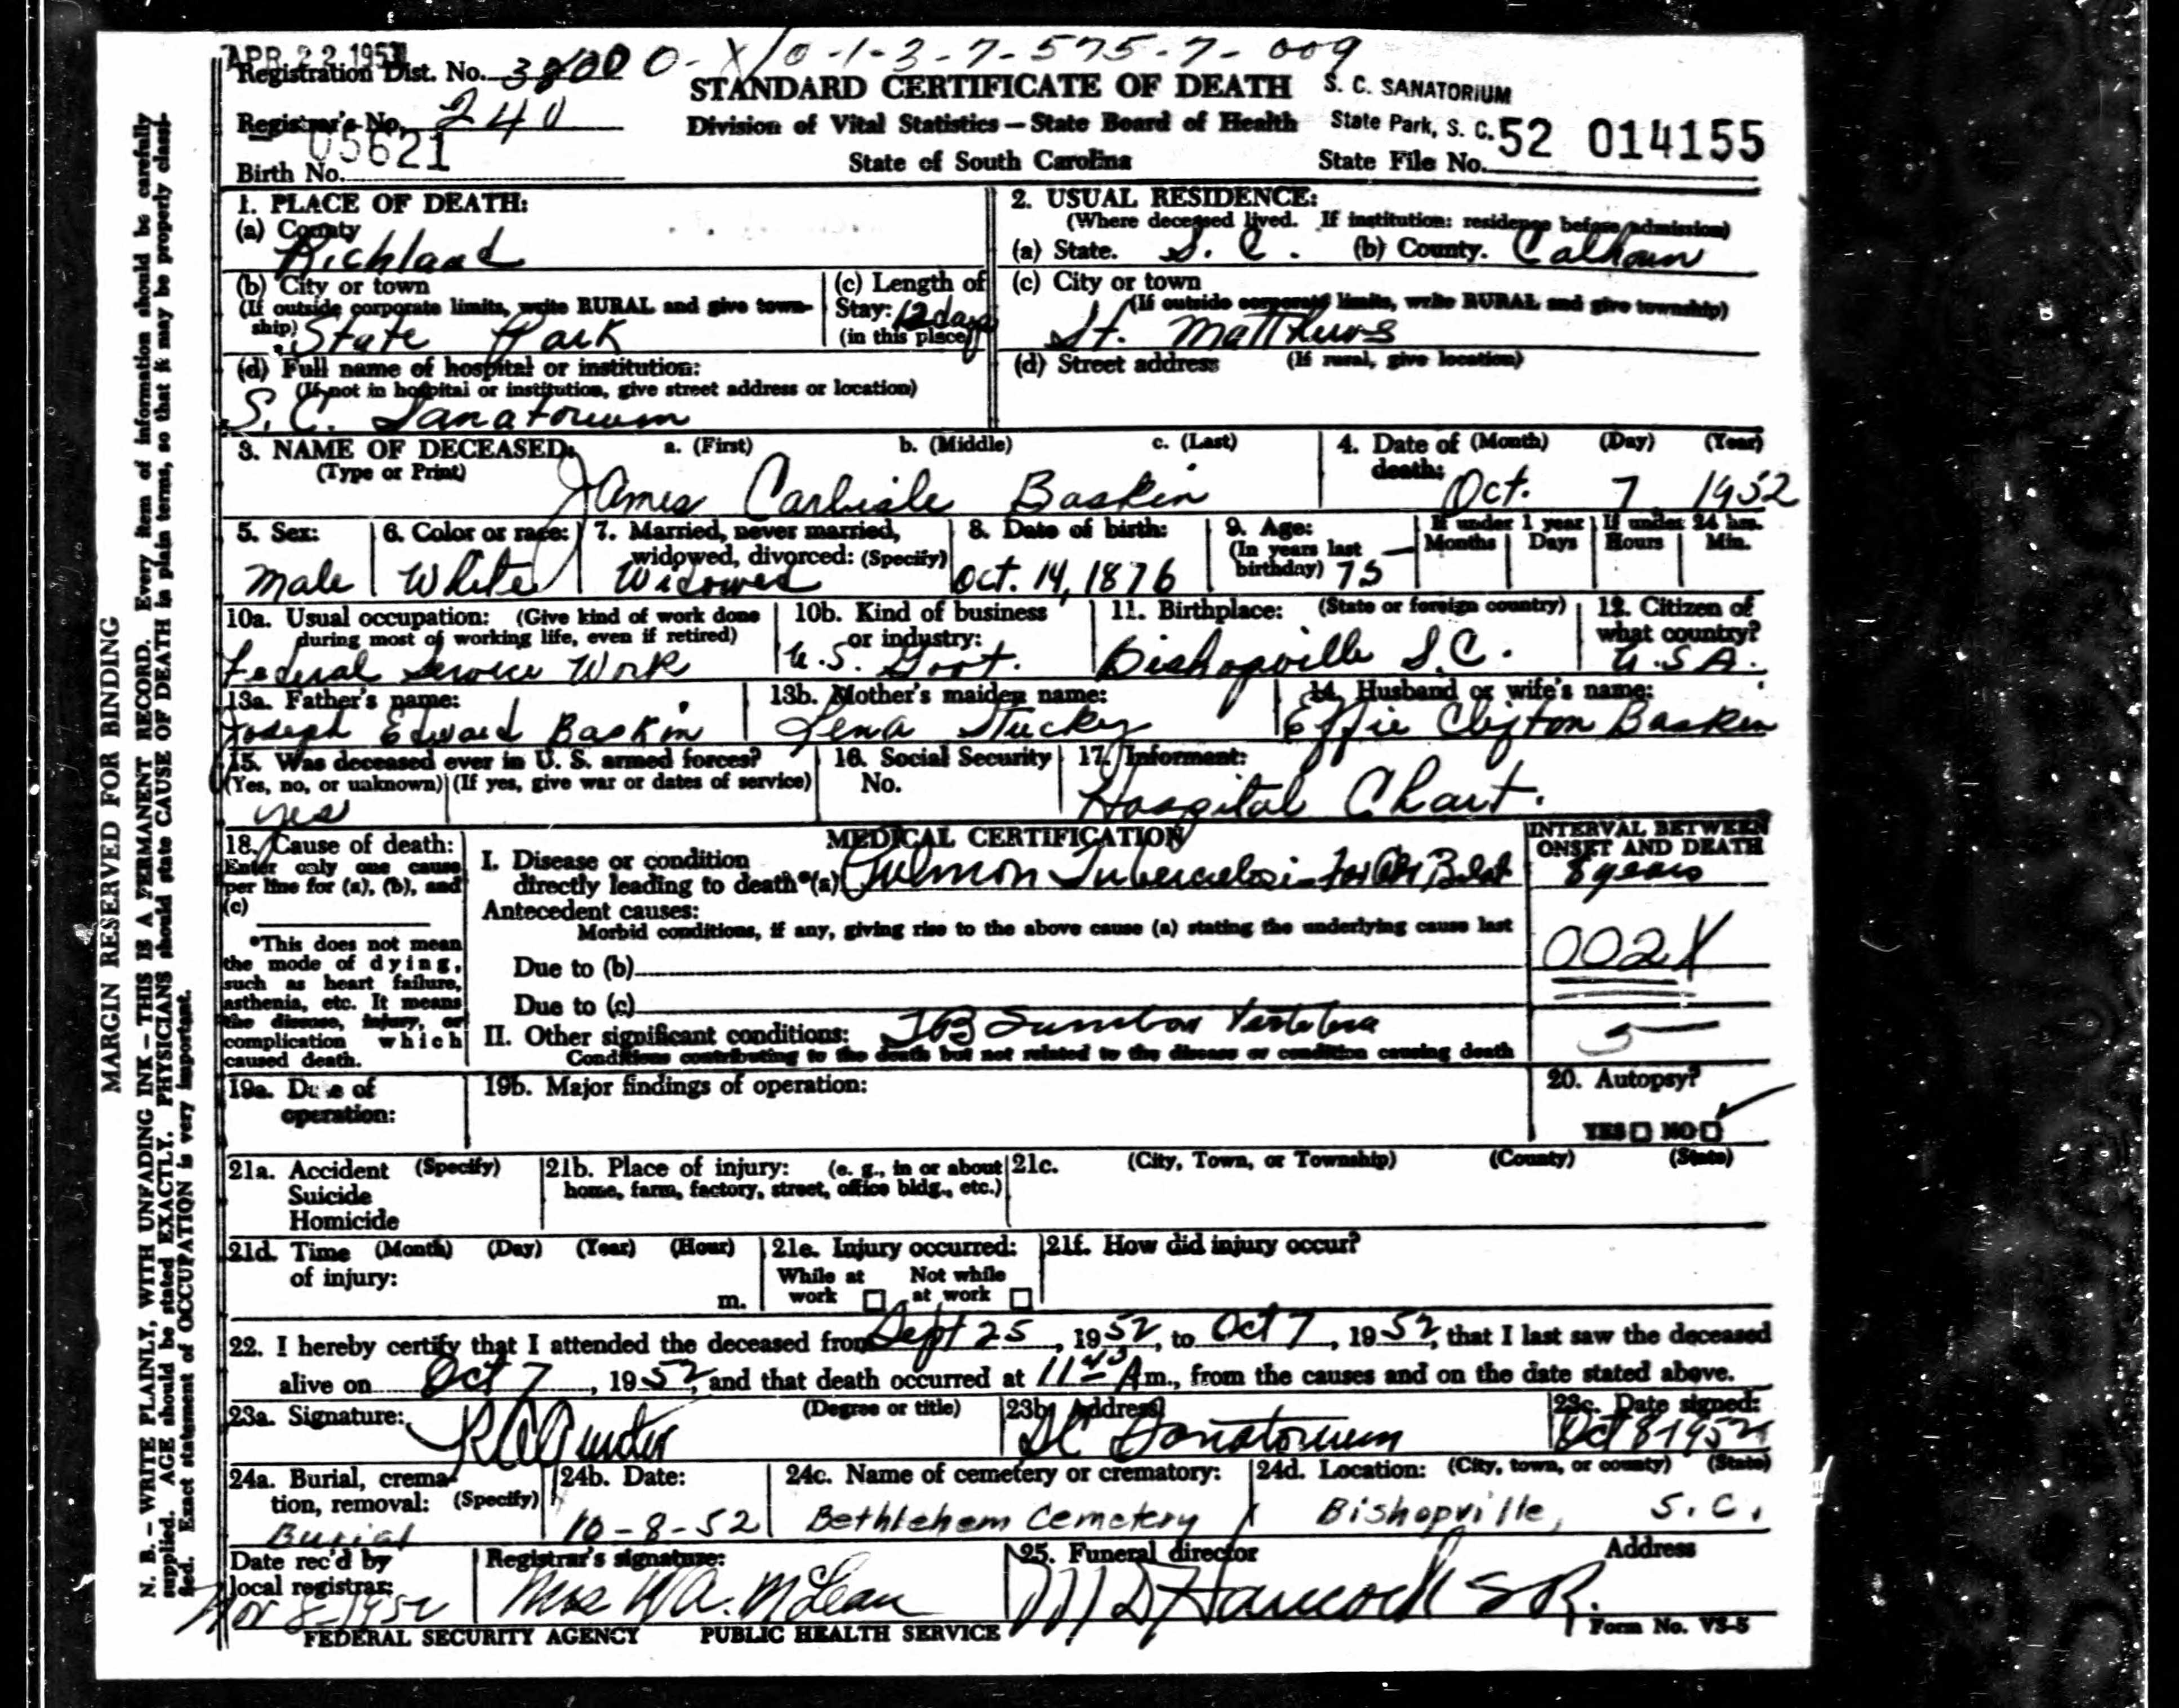 APR 22 1953
Registration Dist. No. 3800 0-X/0-1-3-7-575-7-009
STANDARD CERTIFICATE OF DEATH
S. C. SANATORIUM
Registrar's No. 240
Division of Vital Statistics — State Board of Health
State Park, S. C.
05621
Birth No.
State of South Carolina
State File No. 52 014155
1. PLACE OF DEATH:
(a) County
Richland
2. USUAL RESIDENCE:
(Where deceased lived. If institution: residence before admission)
(a) State. S. C. (b) County. Calhoun
(b) City or town
(If outside corporate limits, write RURAL and give town-
ship) State Park
(c) Length of
Stay: 12 days
(in this place)
(c) City or town
(If outside corporate limits, write RURAL and give township)
St. Matthews
(d) Full name of hospital or institution:
(If not in hospital or institution, give street address or location)
S. C. Sanatorium
(d) Street address (If rural, give location)
3. NAME OF DECEASED: a. (First) b. (Middle) c. (Last)
(Type or Print)
James Carlisle Baskin
4. Date of (Month) (Day) (Year)
death: Oct. 7 1952
5. Sex:
Male
6. Color or race:
White
7. Married, never married,
widowed, divorced: (Specify)
Widowed
8. Date of birth:
Oct. 14, 1876
9. Age:
(In years last
birthday) 75
If under 1 year If under 24 hrs.
Months Days Hours Min.
10a. Usual occupation: (Give kind of work done
during most of working life, even if retired)
Federal Service Work
10b. Kind of business
or industry:
U.S. Govt.
11. Birthplace: (State or foreign country)
Bishopville S.C.
12. Citizen of
what country?
U.S.A.
13a. Father's name:
Joseph Edward Baskin
13b. Mother's maiden name:
Lena Stucky
14. Husband or wife's name:
Effie Clifton Baskin
15. Was deceased ever in U. S. armed forces?
(Yes, no, or unknown) (If yes, give war or dates of service)
yes
16. Social Security
No.
17. Informant:
Hospital Chart.
18. Cause of death:
Enter only one cause
per line for (a), (b), and
(c)
*This does not mean
the mode of dying,
such as heart failure,
asthenia, etc. It means
the disease, injury, or
complication which
caused death.
MEDICAL CERTIFICATION
I. Disease or condition
directly leading to death*(a) Pulmon Tuberculosis
Antecedent causes:
Morbid conditions, if any, giving rise to the above cause (a) stating the underlying cause last
Due to (b)
Due to (c)
II. Other significant conditions: TB
Conditions contributing to the death but not related to the disease or condition causing death
INTERVAL BETWEEN
ONSET AND DEATH
8 years
002X
5
19a. Date of
operation:
19b. Major findings of operation:
20. Autopsy?
YES NO
21a. Accident (Specify)
Suicide
Homicide
21b. Place of injury: (e. g., in or about
home, farm, factory, street, office bldg., etc.)
21c. (City, Town, or Township) (County) (State)
21d. Time (Month) (Day) (Year) (Hour)
of injury:
m.
21e. Injury occurred:
While at Not while
work at work
21f. How did injury occur?
22. I hereby certify that I attended the deceased from Sept 25, 1952, to Oct 7, 1952, that I last saw the deceased
alive on Oct 7, 1952, and that death occurred at 11 Am., from the causes and on the date stated above.
23a. Signature: (Degree or title)
23b. Address
SC Sanatorium
23c. Date signed:
Oct 8 1952
24a. Burial, crema-
tion, removal: (Specify)
Burial
24b. Date:
10-8-52
24c. Name of cemetery or crematory:
Bethlehem Cemetery
24d. Location: (City, town, or county) (State)
Bishopville, S.C.
Date rec'd by
local registrar:
Nov 8-1952
Registrar's signature:
Mrs W.A. McLean
25. Funeral director Address
Hancock SR.
FEDERAL SECURITY AGENCY PUBLIC HEALTH SERVICE Form No. VS-5
MARGIN RESERVED FOR BINDING
N. B. — WRITE PLAINLY, WITH UNFADING INK — THIS IS A PERMANENT RECORD. Every item of information should be carefully
supplied. AGE should be stated EXACTLY. PHYSICIANS should state CAUSE OF DEATH in plain terms, so that it may be properly classi-
fied. Exact statement of OCCUPATION is very important.